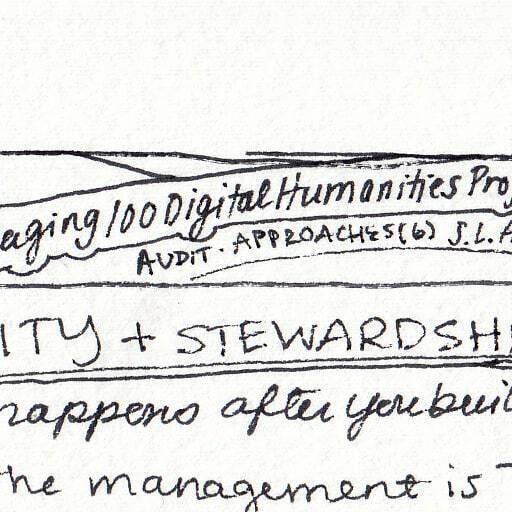 aging 100 Digital Humanities Pro
AUDIT. APPROACHES (6) S.L.A
ITY + STEWARDSH
happens after you buil
he management is